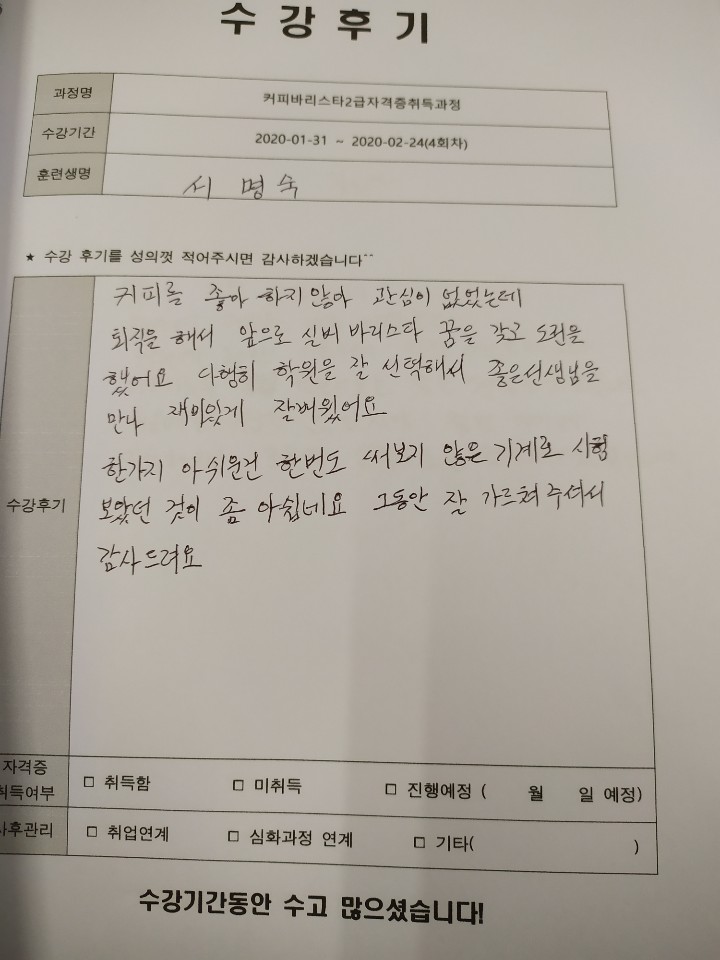 수강후기
과정명 커피바리스타2급자격증취득과정
수강기간 2020-01-31 ~ 2020-02-24(4회차)
훈련생명 서 명숙
★ 수강 후기를 성의껏 적어주시면 감사하겠습니다^^
수강후기
커피를 좋아 하지 않아 관심이 없었는데
퇴직을 해서 앞으로 실버 바리스타 꿈을 갖고 도전을
했어요 다행히 학원을 잘 선택해서 좋은선생님을
만나 재미있게 잘배웠어요
한가지 아쉬운건 한번도 써보지 않은 기계로 시험
보았던 것이 좀 아쉽네요 그동안 잘 가르쳐 주셔서
감사드려요
자격증
취득여부 □ 취득함 □ 미취득 □ 진행예정 ( 월 일 예정)
사후관리 □ 취업연계 □ 심화과정 연계 □ 기타( )
수강기간동안 수고 많으셨습니다!